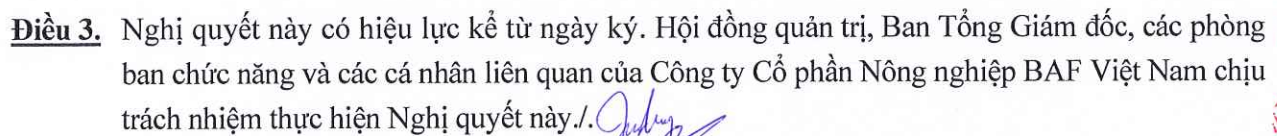 Điều 3. Nghị quyết này có hiệu lực kể từ ngày ký. Hội đồng quản trị, Ban Tổng Giám đốc, các phòng
ban chức năng và các cá nhân liên quan của Công ty Cổ phần Nông nghiệp BAF Việt Nam chịu
trách nhiệm thực hiện Nghị quyết này./.